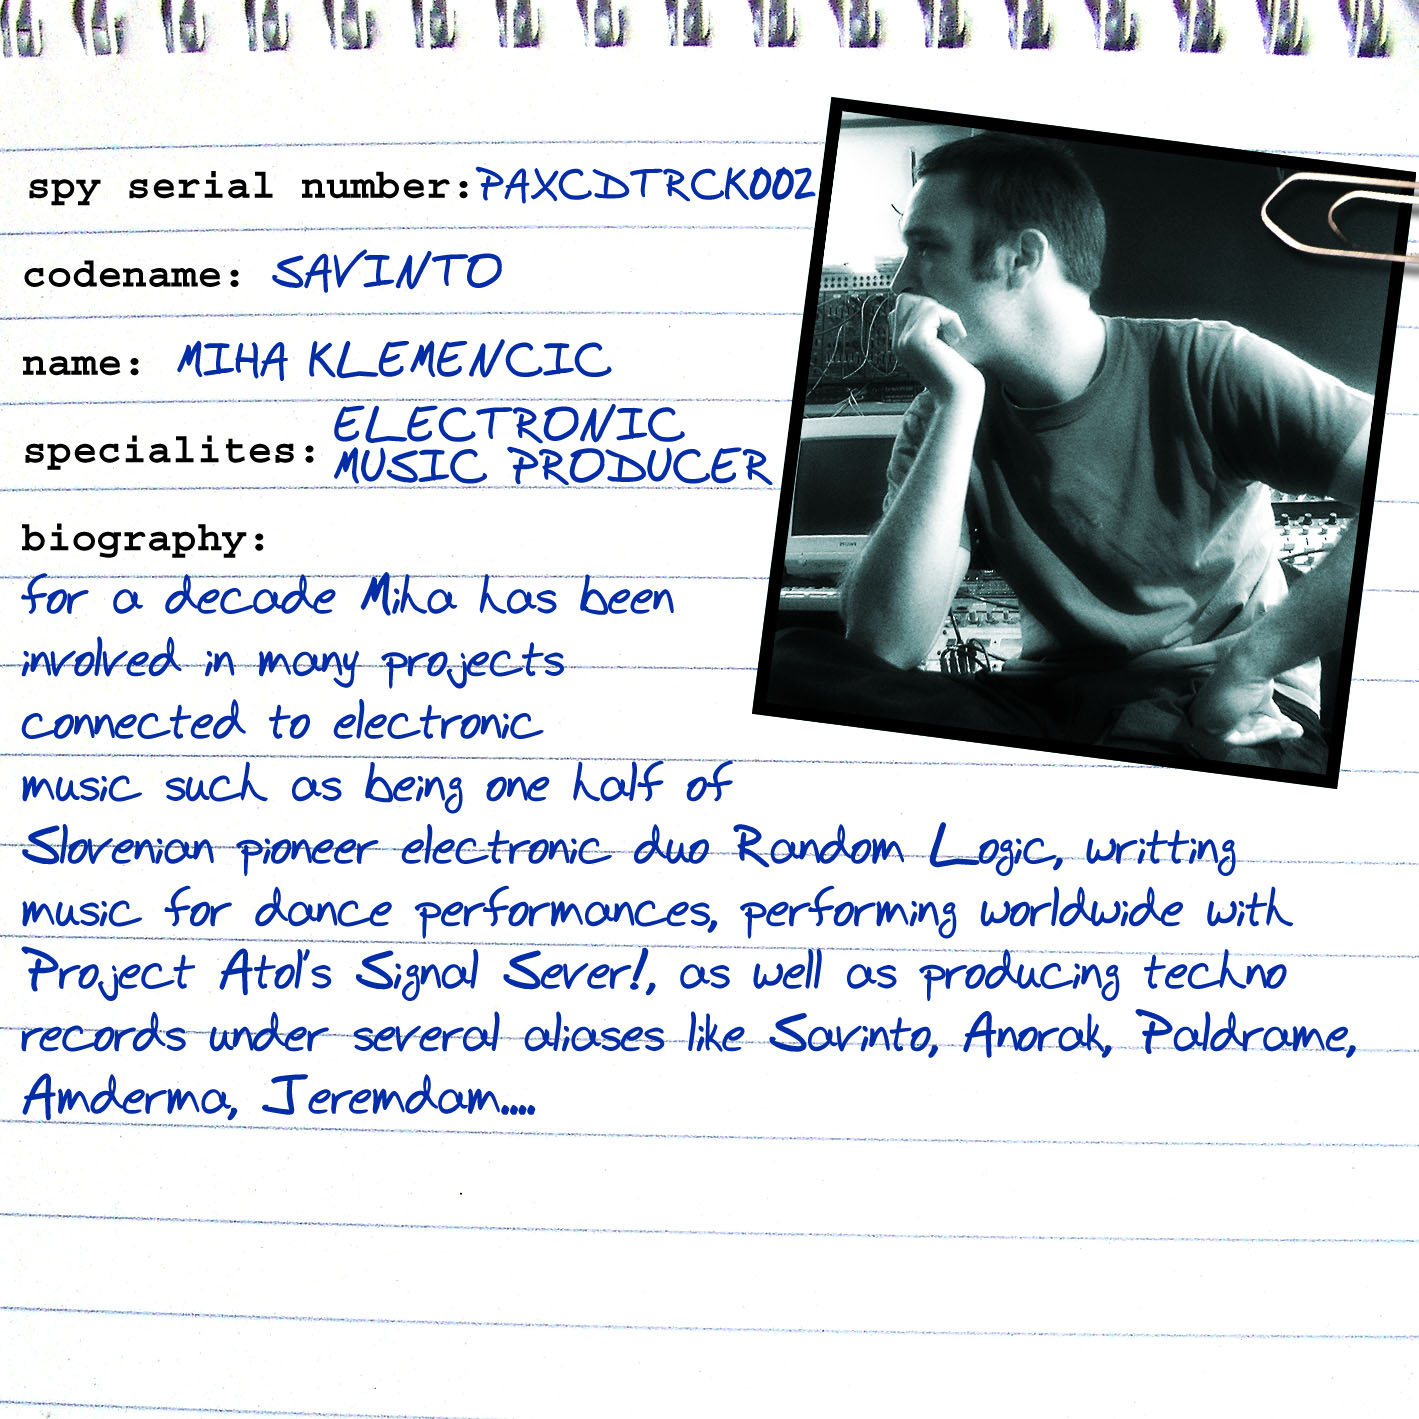 spy serial number: PAXCDTRCK002
codename: SAVINTO
name: MIHA KLEMENCIC
specialites: ELECTRONIC
MUSIC PRODUCER
biography:
for a decade Miha has been
involved in many projects
connected to electronic
music such as being one half of
Slovenian pioneer electronic duo Random Logic, writting
music for dance performances, performing worldwide with
Project Atol's Signal Sever!, as well as producing techno
records under several aliases like Savinto, Anorak, Paldrame,
Amderma, Jeremdam....